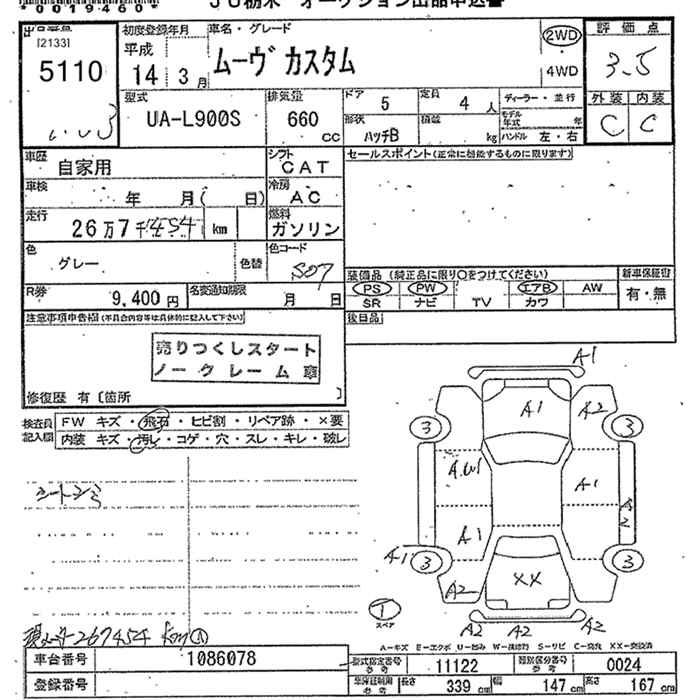 *0019460*
JU栃木 オークション出品申込書
[2133]
5110
初度登録年月
平成
14 3月
車名・グレード
ムーヴカスタム
2WD
4WD
評価点
3.5
外装 内装
C C
型式
UA-L900S
排気量
660
CC
ドア 5
定員 4 人
形状 ハッチB
積載 kg
ディーラー・並行
モデル年式 年
ハンドル 左・右
車歴
自家用
シフト
CAT
セールスポイント(正常に機能するものに限ります)
車検
年 月( 日)
冷房
AC
走行
26万7千454 km
燃料
ガソリン
色
グレー
色替
色コード
S07
R券
9,400円
名変通知期限
月 日
装備品 (純正品に限り○をつけてください)
PS PW エアB AW
SR ナビ TV カワ
新車保証書
有・無
後日品
注意事項申告欄(不具合内容等は具体的に記入して下さい)
売りつくしスタート
ノークレーム車
修復歴 有〔箇所 〕
検査員記入欄
FW キズ・飛石・ヒビ割・リペア跡・×要
内装 キズ・汚レ・コゲ・穴・スレ・キレ・破レ
A1
A1
A2
3
3
A.W1
A1
A2
A1
A1
3
3
A2
XX
1
スペア
A2
A2
A2
267454 km
A-キズ E-エクボ U-凹み W-補修跡 S-サビ C-腐食 XX-交換済
車台番号
1086078
型式指定番号
参考
11122
類別区分番号
参考
0024
登録番号
車庫証明用
参考
長さ 339 cm
幅 147 cm
高さ 167 cm